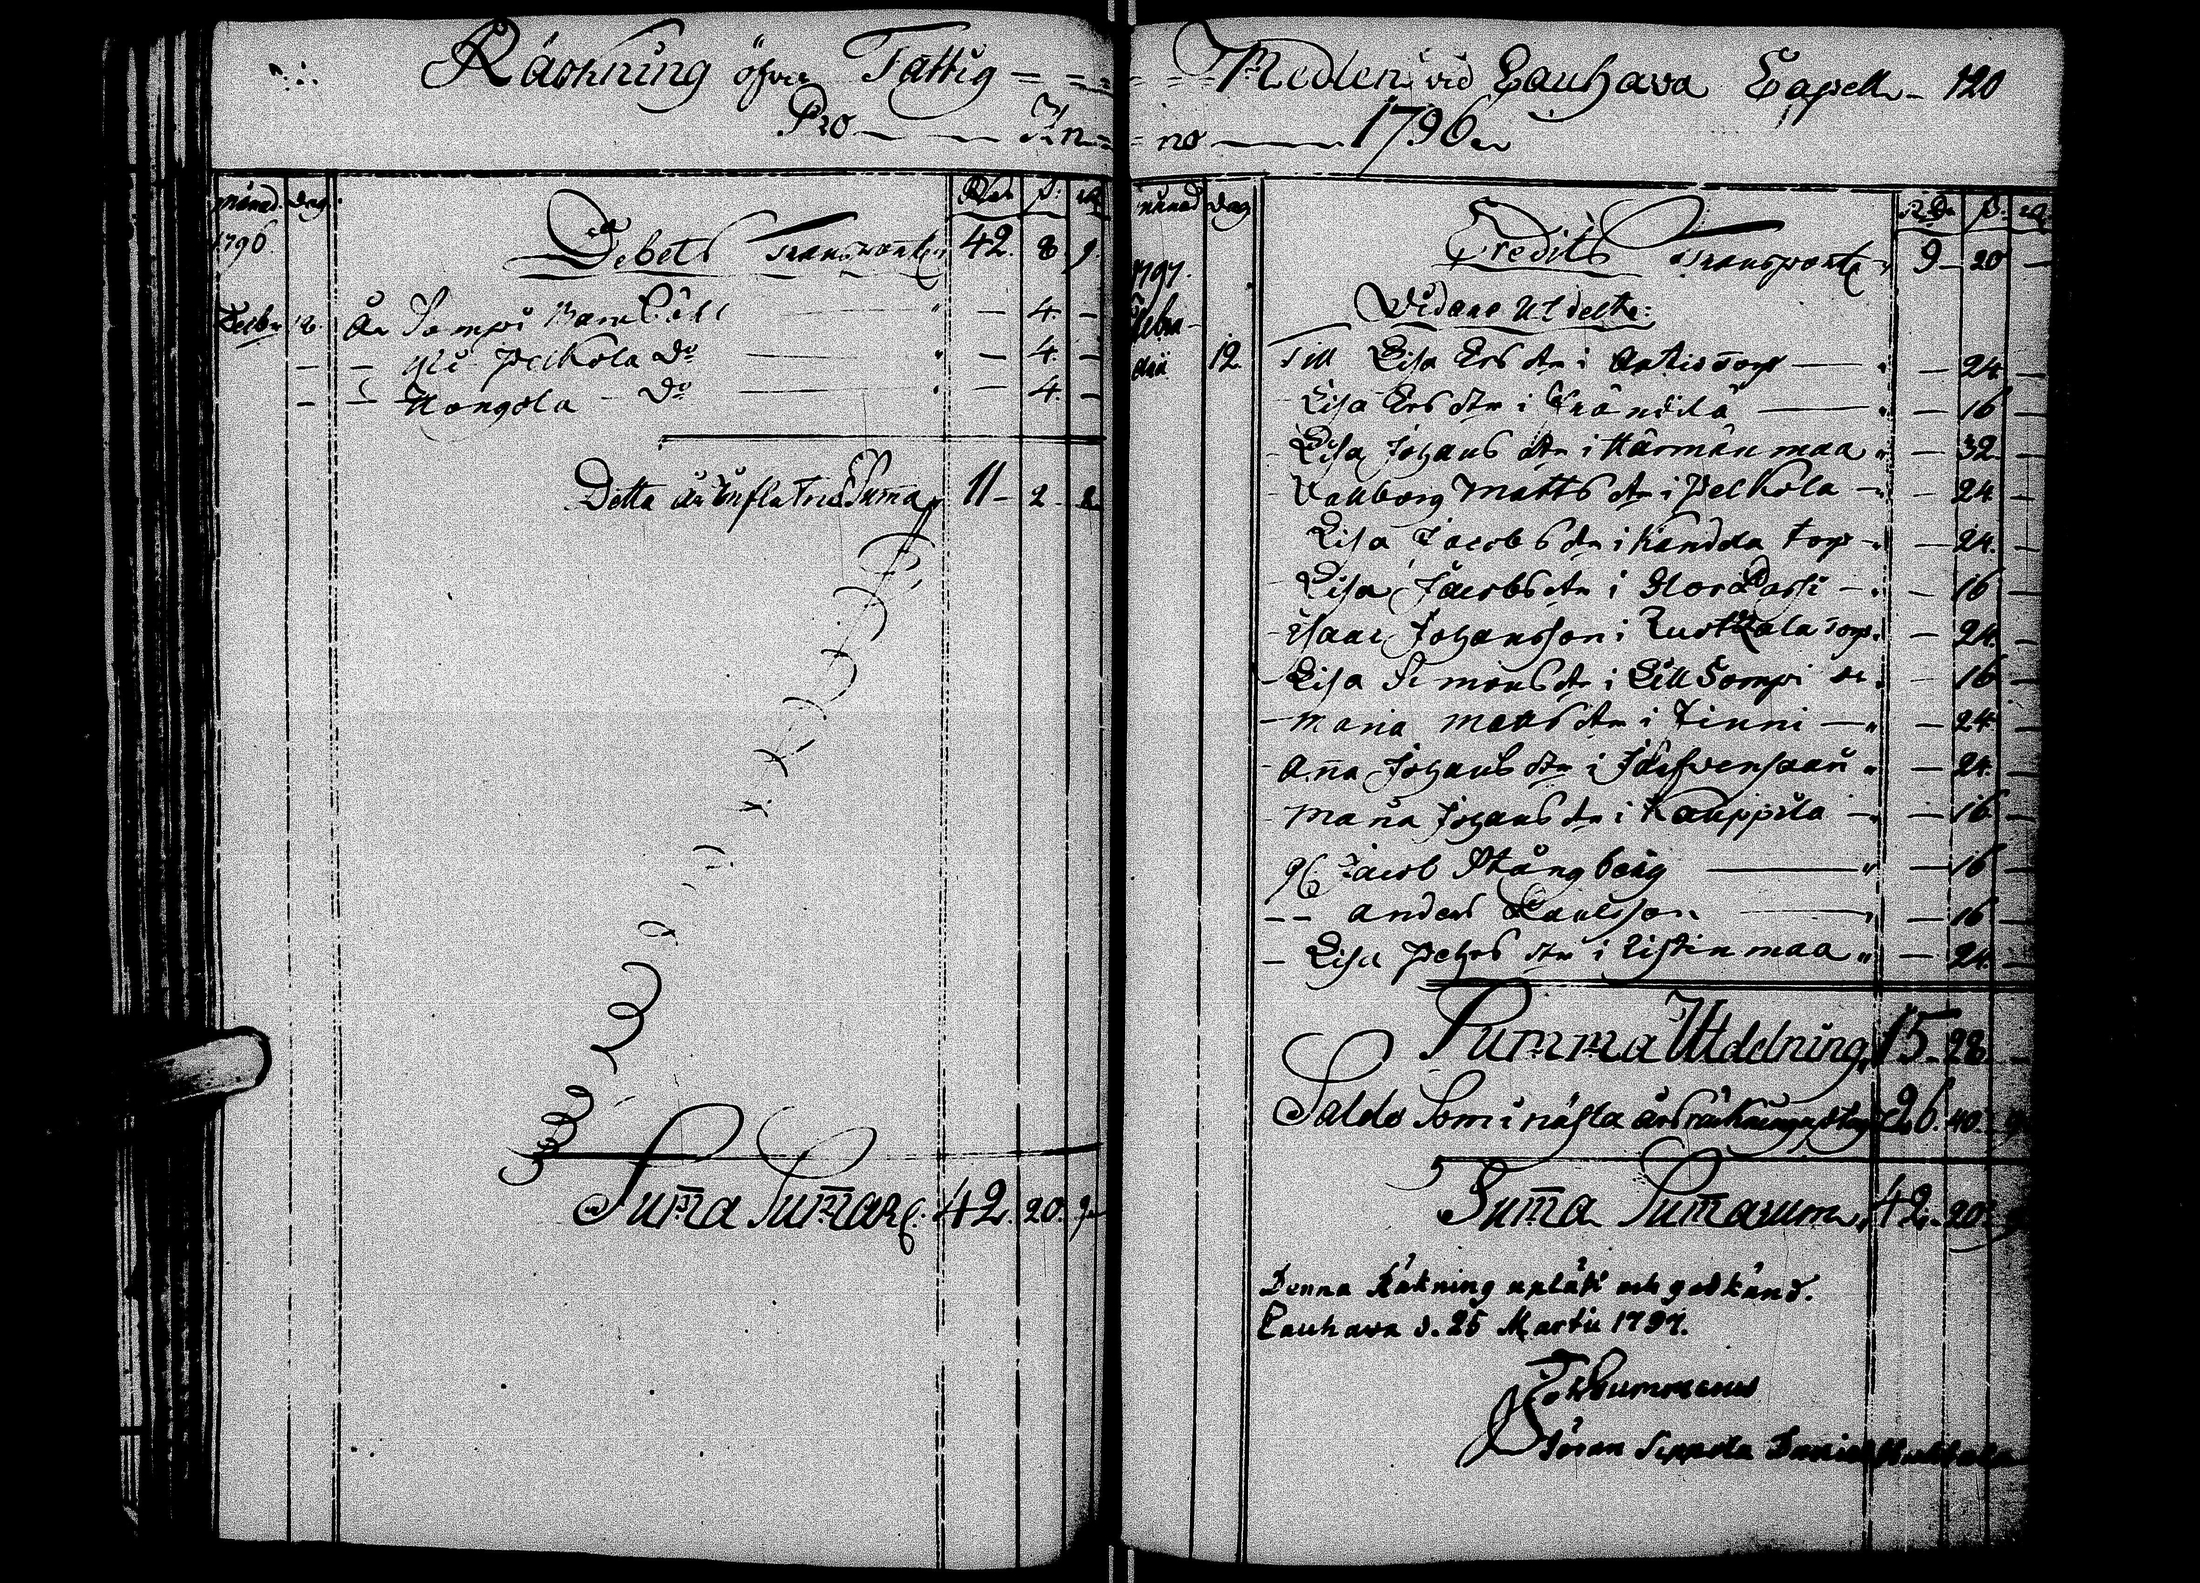 Räckning öfver Fattig = = = = = Medlen vid Lauhava Capell – 120
Pro — An = = no — 1796
månad dag Rdr ß: rst
1796 Debet Transporte 42. 8. 9.
Decbr 18. Ar Sompi Barn Öhl — 4. –
– – Pelkola Do — 4. –
– – Kangola Do — 4. –
Detta år influtne Suma 11 – 2 – 2
Suma Sumar: 42. 20. 9
månad dag R.Dr ß. rst
Credit Transporte 9 – 20 –
1797.
Vidare Utdelte:
Febru-
arii 12. Till Lisa Ers dtr i Antis torp — – 24. –
Lisa Ers dtr i Brändilä — – 16 –
– Lisa Johans dtr i Härmän maa – 32 –
– Vallborg Matts dtr i Pelkola – – 24 –
Lisa Jacobs dtr i Kandola torp – – 24. –
Lisa Jacobs dtr i – – 16 –
– Isaac Johansson i torp. – 24. –
– Lisa Simons dtr i Lill Sompi – 16 –
– Maria Mats dtr i Finni — – 24. –
– Anna Johans dtr i Järfvenpään – 24. –
– Maria Johans dtr i Kauppila – – 16 –
Jacob Stångberg — – 16 –
– – Anders Carlsson — – 16 –
– Lisa Pehrs dtr i Ristin maa – 24. –
Summa Utdelning 15 – 28. –
Saldo som i näste års räkning uptages 26. 40. 9
Suma Sumarum, 42. 20. 9
Denna Räkning upläst och godkänd.
Lauhava d. 25 Martii 1797.
Göran Seppola Daniel